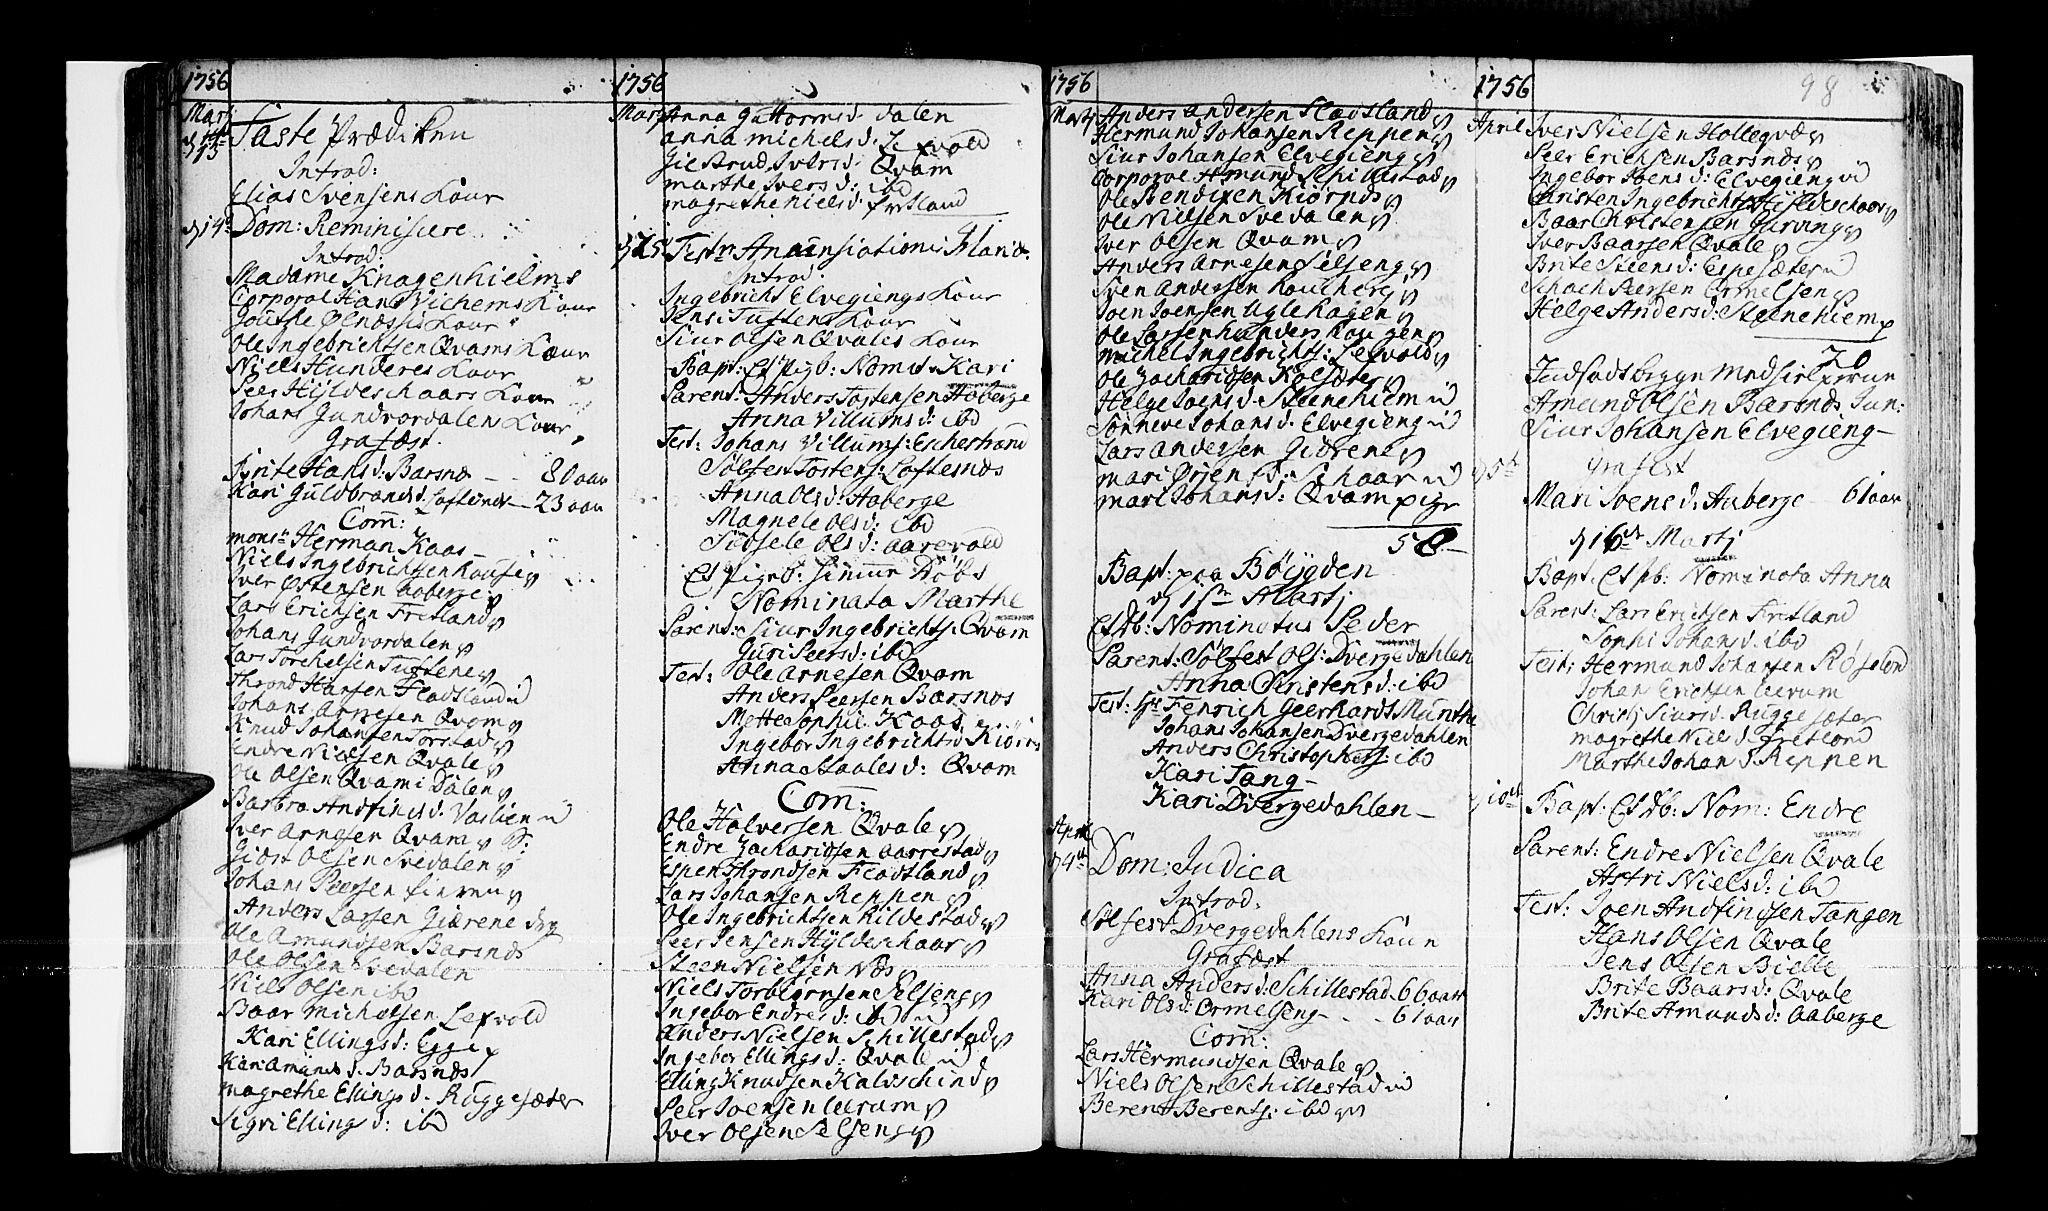 1756
Martj
Faste Prædiken
Introd:
Elias Svensens Kour
d 14de Dom: Reminiscere
Introd:
Madame Knagenhielms
Corporal Hans Vichems Kour
Gouthe Ølnæssis Kour
Ole Ingebrichtsen Qvams Kour
Niels Hunderes Kour
Peer Hyldeschaars Kour
Johans Gundvordalen Kour
Grafæst.
Brite Hans d: Barsnæ - - 80 aar
Kari Guldbrands d. Loftenæs - 23 aar
Com:
monsr Herman Kaas
Niels Ingebrichtsen
Iver Ostensen Aaberge
Lars Erichsen Fretland
Johans Gundvordalen
Lars Torchelsen Tuftene
Thrond Hansen Fladsland
Johans Arnesen Qvam
Knud Johansen Torstad
Endre Nielsen Qvale
Ole Olsen Qvam i Dalen
Barbra Andfins d: Vaslien
Iver Arnesen Qvam
Giøst Olsen Svedalen
Johans Peersen
Anders Larsen Giærene
Ole Amundsen Barsnæs
Ole Olsen Svedalen
Niels Olsen ibd
Baar Michelsen Lexvold
Kari Ellings d: Egge
Kari Amunds d. Barsnæs
Magrethe Ellings d. Ruggesæter
Sigri Ellings d: ibd
1756
Martj Anna Guttorms d. Dalen
Anna Michels d: Lexvold
Giertrud Ivers d: Qvam
Marthe Ivers d: ibd
Magrethe Niels d: Fretland
d 25 Festo Anunsiationis Mariæ
Introd:
Ingebricht Elvegiengs Kour
Jens Tuftens Kour
Siur Olsen Qvales Kour
Bapt: Et pigb: Nomine Kari
Parent: Anders Tostensen Aaberge
Anna Villums d: ibd
Test: Johans Villums: Eschestrand
Sølfest Tostens: Loftesnæs
Anna Ols d: Aaberge
Magnele Ols d: ibd
Sidsele Ols d: Aarevold
Et pigeb: Døbs
Nominata Marthe
Parent: Siur Ingebrichts: Qvam
Guri Peers d: ibd
Test: Ole Arnesen Qvam
Anders Peersen Barsnæs
Mette Sophie Kaas
Ingebor Ingebrichts d Kiørnæs
Anna Maales d: Qvam
Com:
Ole Halversen Qvale
Endre Zacharidsen Aarrestad
Espen Throndsen Fladsland
Lars Johansen Reppen
Ole Ingebrichtsen Kildestad
Peer Jensen Hyldeschaar
Steen Nielsen Næs
Niels Torbiørnsen Selseng
Ingebor Endres d: ibd
Anders Nielsen Schillestad
Ingebor Ellings d: Qvale
Elling Knudsen Kalvschind
Peer Joensen Leerum
Iver Olsen Selseng
1756
Martj Anders Andersen Fladsland
Hermund Johansen Reppen
Siur Johansen Elvegieng
Corporal Amund Schillestad
Ole Bendixen Kiørnæs
Ole Nielsen Svedalen
Iver Olsen Qvam
Anders Arnesen Selseng
Sven Andersen Kouthers
Joen Joensen Uglehagen
Ole Larsen Hunders Kougen
Michel Ingebrichts: Lexvold
Ole Zacharidsen Kolsæter
Helge Joens d: Steenehiem
Sønneve Johans d: Elvegieng
Lars Andersen Giærene
Mari Ørjens d: Schaar
Mari Johans d: Qvam pige
58
Bapt: paa Bøygden
d 1ste Martj
Et Db: Nominatus Peder
Parent: Sølfest Ols: Dvergedahlen
Anna Christens d: ibd
Test: Hr Fenrich Geerhards Munthe
Johans Johansen Dvergedahlen
Anders Christophers: ibd
Kari Tang
Kari Dvergedahlen
April
d 4de Dom: Judica
Introd:
Sølfest Dvergedahlens Koun
Grafæst
Anna Anders d: Schillestad 66 aar
Kari Ols d: Ormelseng - - 61 aar
Com:
Lars Hermundsen Qvale
Niels Olsen Schillestad
Berent Berents: ibd
1756
98
April Iver Nielsen Hollegvæ
Peer Erichsen Barsnæs
Ingebor Joens d: Elvegieng
Christen Ingebrichts: Hyldeschaar
Baar Christensen Gurving
Iver Baarsen Qvale
Brite Steens d: Espesæter
Schach Peersen Ormelseng
Helge Anders d: Steenehiem
20
Amund Olsen Barsnæs Jun:
Siur Johansen Elvegieng
d 5te Grafest
Mari Svens d: Aaberge - 61 aar
d 16de Martj
Bapt: Et pb: Nominata Anna
Parent: Lars Erichsen Fretland
Sophi Johans d: ibd
Test: Hermund Johansen Røselond
Johan Erichsen Leerum
Christj Siurs d. Ruggesæter
Magrethe Niels d. Fretland
Marthe Johans d. Reppen
d 10de Bapt: Et Db: Nom: Endre
Parent: Endre Nielsen Qvale
Astri Niels d: ibd
Test: Joen Andfindsen Tangen
Hans Olsen Qvale
Jens Olsen Bielle
Brite Baars d: Qvale
Brite Amunds d: Aaberge